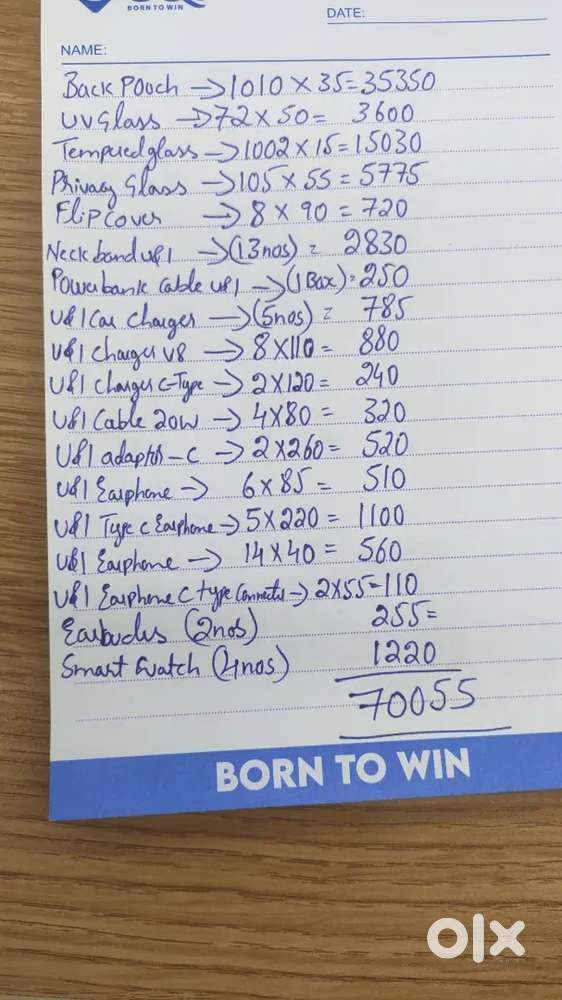 BORN TO WIN
DATE:
NAME:
Back Pouch → 1010 × 35 = 35350
UV Glass → 72 × 50 = 3600
Tempured glass → 1002 × 15 = 15030
Privacy Glass → 105 × 55 = 5775
Flip Cover → 8 × 90 = 720
Neck band U&I → (13nos) = 2830
Powerbank Cable U&I → (1 Box) = 250
U&I Car Charger → (5nos) = 785
U&I Charger V8 → 8 × 110 = 880
U&I Charger C-Type → 2 × 120 = 240
U&I Cable 20W → 4 × 80 = 320
U&I adaptor - C → 2 × 260 = 520
U&I Earphone → 6 × 85 = 510
U&I Type C Earphone → 5 × 220 = 1100
U&I Earphone → 14 × 40 = 560
U&I Earphone C type Connector → 2 × 55 = 110
Earbuds (2nos) 255 =
Smart Watch (4nos) 1220
70055
BORN TO WIN
olx